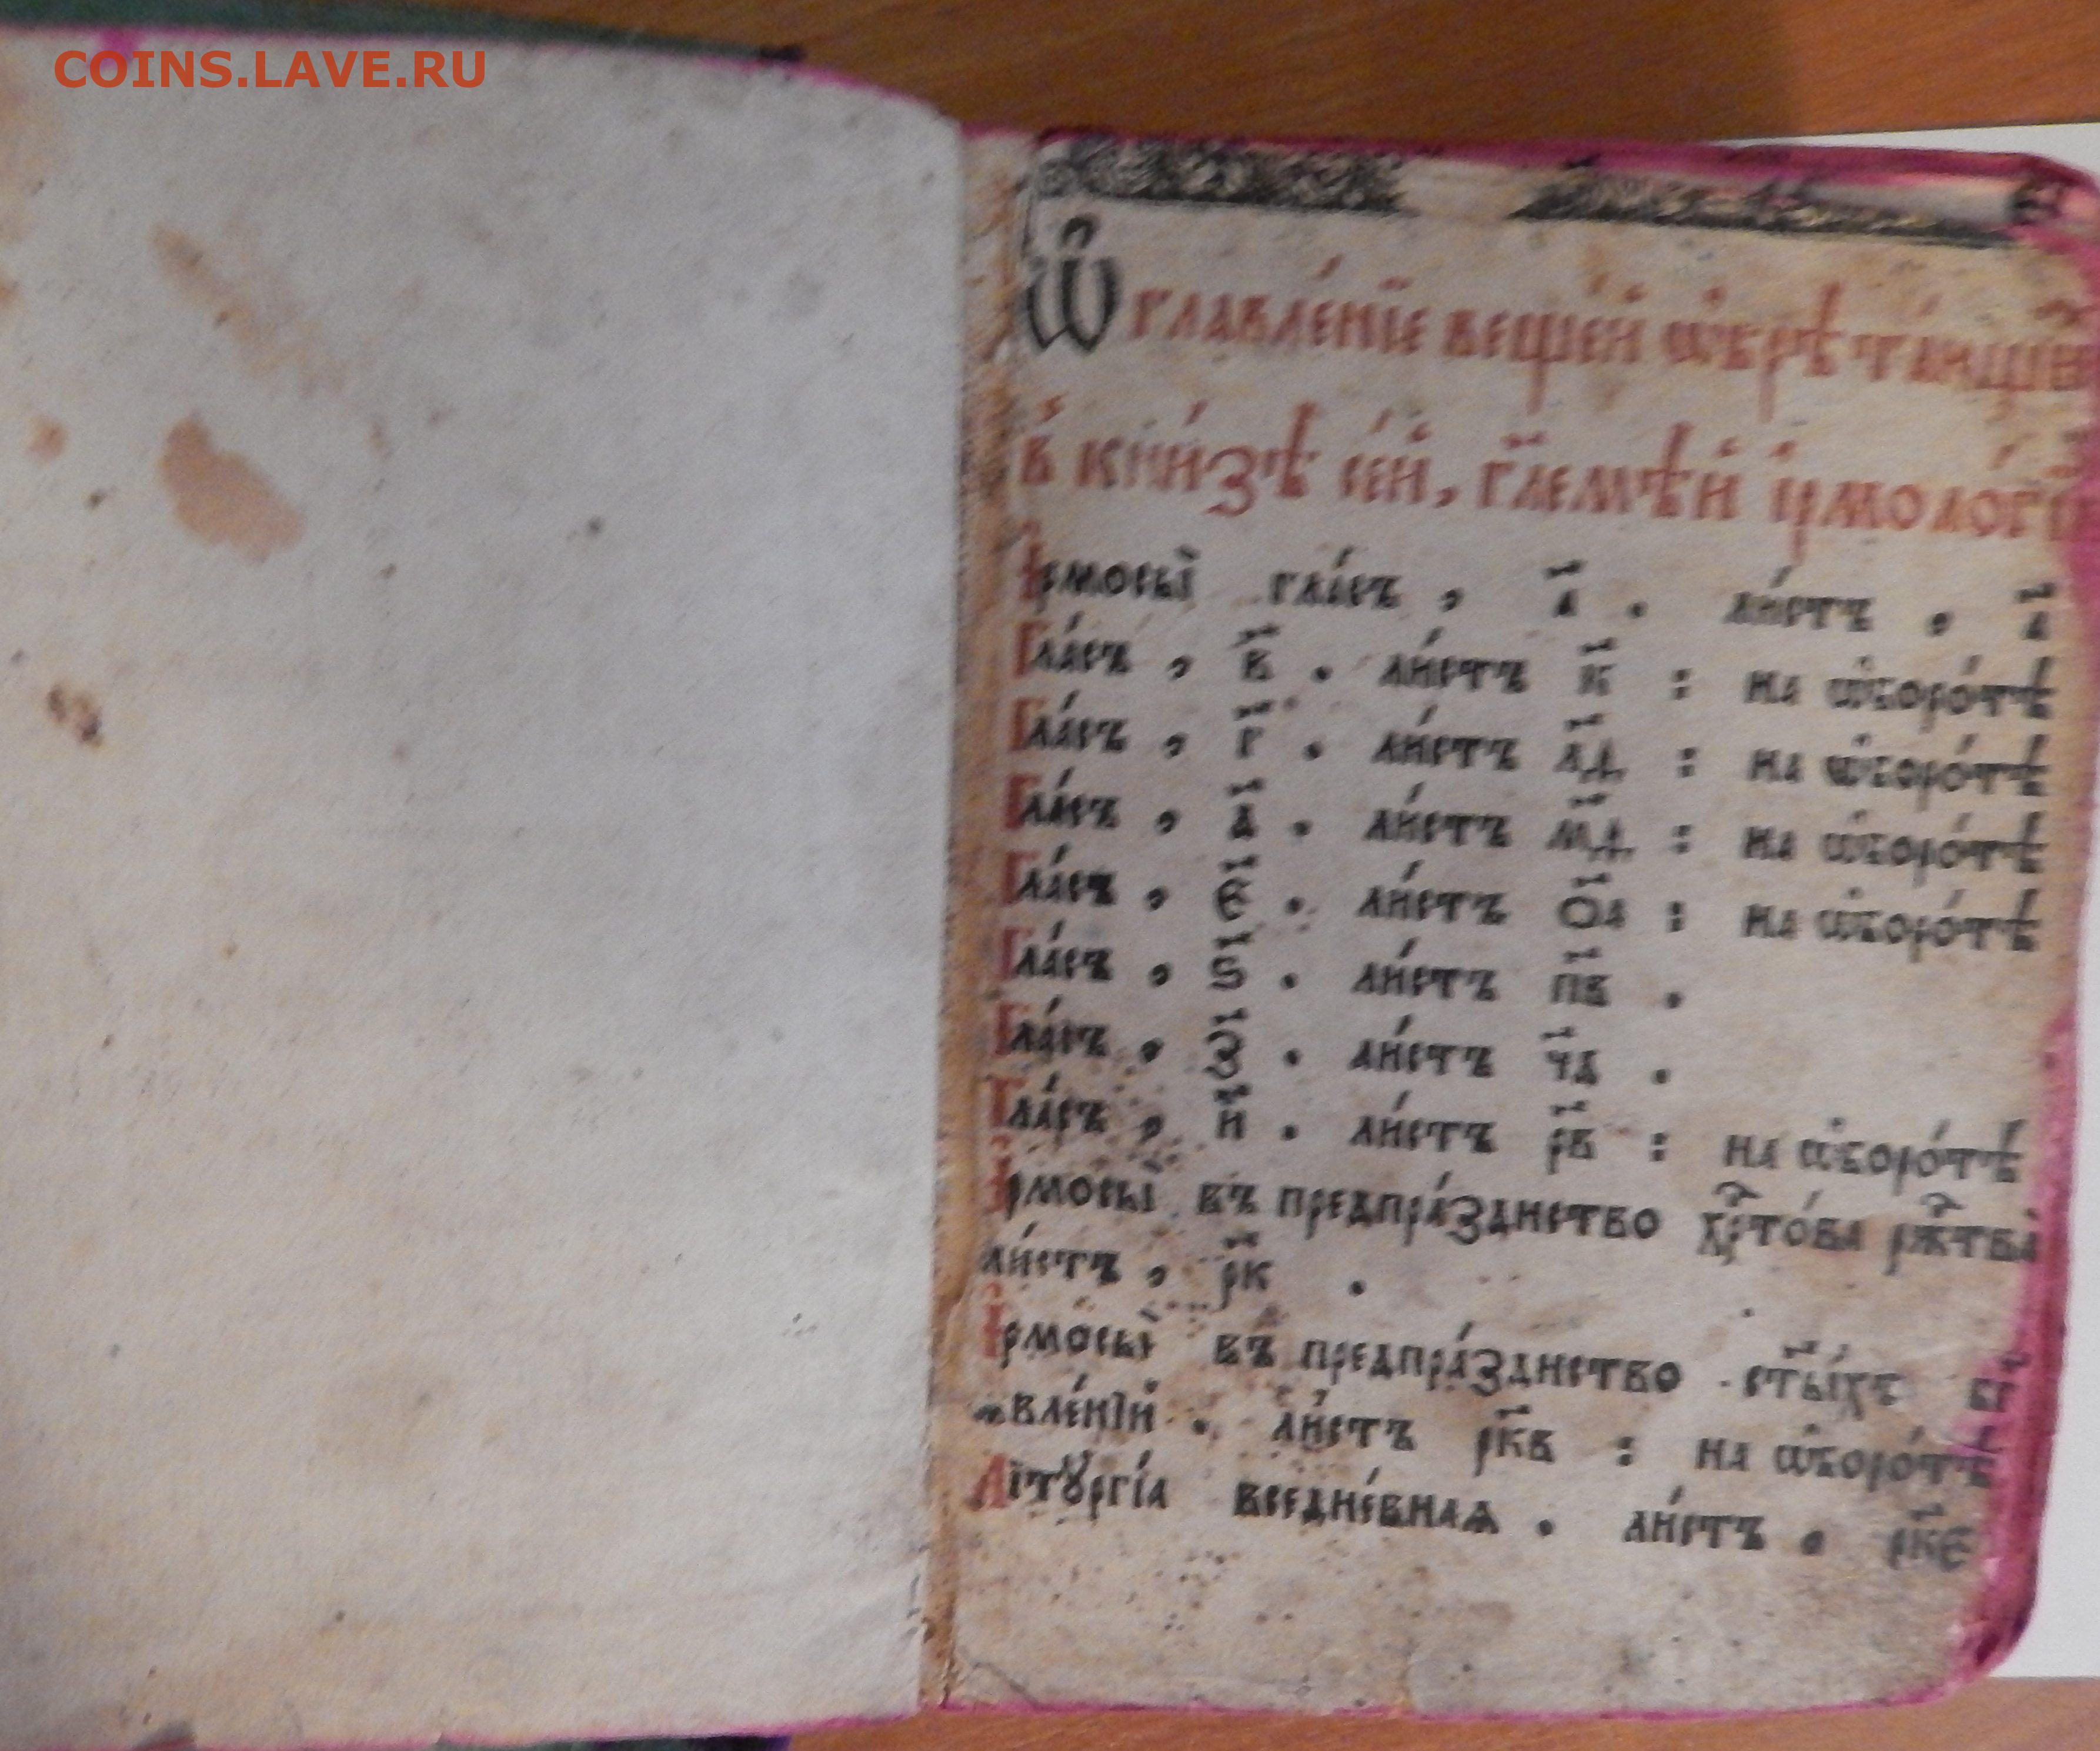 COINS.LAVE.RU
Ѡ҆главле́нїе веще́й ѡ҆брѣта́ющи
в̾ кни́зѣ се́й, гл҃емѣй і҆рмоло́гї
І҆рмосы̀ гла́съ, а҃. ли́стъ, а҃
Гла́съ, в҃. ли́стъ к҃: на ѡ҆боро́тѣ
Гла́съ, г҃. ли́стъ л҃д: на ѡ҆боро́тѣ
Гла́съ, д҃. ли́стъ м҃д: на ѡ҆боро́тѣ
Гла́съ, є҃. ли́стъ о҃а: на ѡ҆боро́тѣ
Гла́съ, ѕ҃. ли́стъ п҃в.
Гла́съ, з҃. ли́стъ ч҃д.
Гла́съ, и҃. ли́стъ р҃в: на ѡ҆боро́тѣ
І҆рмосы̀ въ предпра́зднство хрⷭ҇то́ва ржⷭ҇тва̀
ли́стъ, р҃к.
І҆рмосы̀ въ предпра́зднство ст҃ы́хъ бг҃
ѧвле́нїй. ли́стъ рк҃в: на ѡ҆боро́тѣ
Літꙋргі́а вседне́внаѧ. ли́стъ. рк҃є